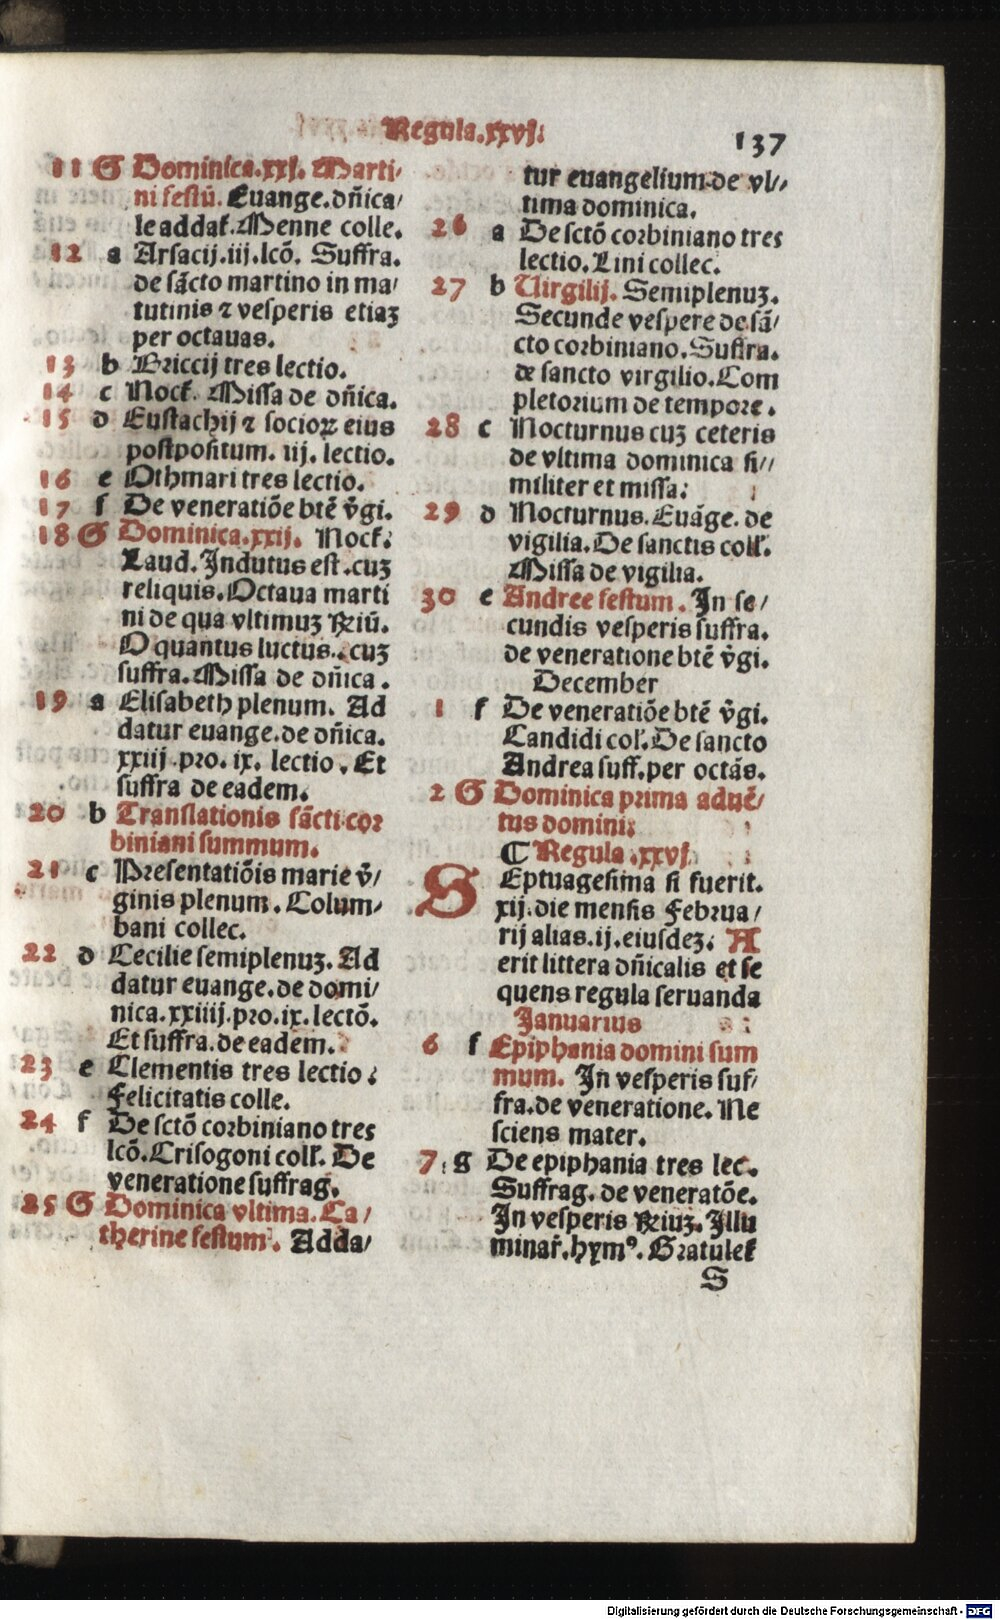 Regula.xxvj.
137
11 G Dominica.xxj. Marti⸗
ni festū. Euange.dn̄ica⸗
le addat̄. Menne colle.
12 a Arsacij.iij.lcō. Suffra.
de sācto martino in ma⸗
tutinis ⁊ vesperis etiaꝫ
per octauas.
13 b Briccij tres lectio.
14 c Noct̄. Missa de dn̄ica.
15 d Eustachij ⁊ socioꝝ eius
postpositum. iij. lectio.
16 e Othmari tres lectio.
17 f De veneratiōe btē v̄gi.
18 G Dominica.xxij. Noct̄.
Laud. Indutus est .cuꝫ
reliquis. Octaua marti
ni de qua vltimuꝫ ꝶiū.
O quantus luctus.. cuꝫ
suffra. Missa de dn̄ica .
19 a Elisabeth plenum. Ad
datur euange.de dn̄ica.
xxiij .pro. ix. lectio . Et
suffra de eadem.
20 b Translationis sācti cor
biniani summum.
21 c Presentatiōis marie v̄⸗
ginis plenum. Colum⸗
bani collec.
22 d Cecilie semiplenuꝫ. Ad
datur euange.de domi⸗
nica.xxiiij.pro.ix.lectō.
Et suffra.de eadem.
23 e Clementis tres lectio.
Felicitatis colle.
24 f De sctō corbiniano tres
lcō. Crisogoni coll̄. De
veneratione suffrag.
25 G Dominica vltima. Ca⸗
therine festum. Adda⸗
tur euangelium.de vl⸗
tima dominica.
26 a De sctō corbiniano tres
lectio. Lini collec.
27 b Virgilij. Semiplenuꝫ.
Secunde vespere de sā⸗
cto corbiniano. Suffra.
de sancto virgilio. Com
pletorium de tempore.
28 c Nocturnus cuꝫ ceteris
de vltima dominica si⸗
militer et missa.
29 d Nocturnus. Euāge. de
vigilia. De sanctis coll̄.
Missa de vigilia.
30 e Andree festum. In se⸗
cundis vesperis suffra.
de veneratione btē v̄gi.
December
1 f De veneratiōe btē v̄gi.
Candidi col̄. De sancto
Andrea suff. per octās.
2 G Dominica prima aduē⸗
tus domini.
¶ Regula .xxvj.
SEptuagesima si fuerit.
xij. die mensis Februa⸗
rij alias.ij.eiusdeꝫ. A
erit littera dn̄icalis et se
quens regula seruanda
Januarius
6 f Epiphania domini sum
mum. In vesperis suf⸗
fra.de veneratione. Ne
sciens mater.
7 g De epiphania tres lec.
Suffrag. de veneratōe.
In vesperis ꝶiuꝫ. Illu
minar̄. hymꝰ. Gratulet̄
S
Digitalisierung gefördert durch die Deutsche Forschungsgemeinschaft - DFG